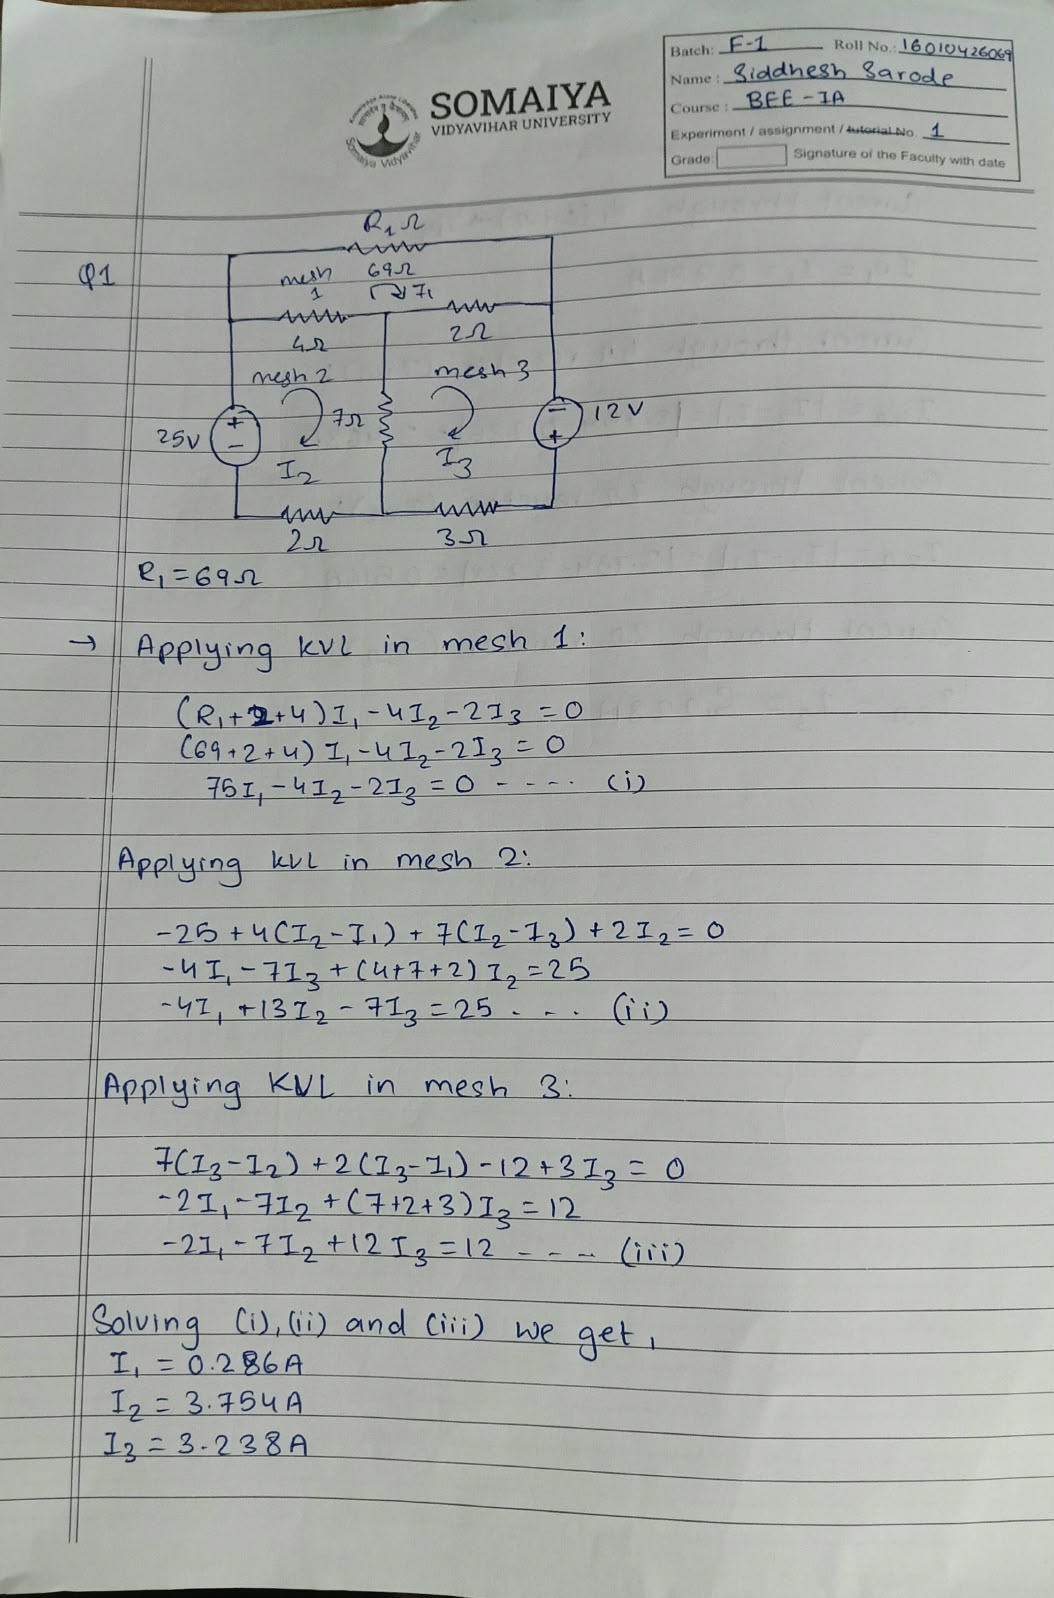 Batch: F-1 Roll No.: 16010426069
Name: Siddhesh Sarode
Course: BEE-IA
Experiment / assignment / tutorial No. 1
Grade: Signature of the Faculty with date
SOMAIYA
VIDYAVIHAR UNIVERSITY
Somaiya Vidyavihar
Q1
R₁Ω
69Ω
mesh 1
I₁
4Ω
2Ω
mesh 2
mesh 3
7Ω
25V
+
-
12V
-
+
I₂
I₃
2Ω
3Ω
R₁=69Ω
→ Applying KVL in mesh 1:
(R₁+2+4)I₁-4I₂-2I₃=0
(69+2+4)I₁-4I₂-2I₃=0
75I₁-4I₂-2I₃=0 ----. (i)
Applying KVL in mesh 2:
-25+4(I₂-I₁)+7(I₂-I₃)+2I₂=0
-4I₁-7I₃+(4+7+2)I₂=25
-4I₁+13I₂-7I₃=25 . - . (ii)
Applying KVL in mesh 3:
7(I₃-I₂)+2(I₃-I₁)-12+3I₃=0
-2I₁-7I₂+(7+2+3)I₃=12
-2I₁-7I₂+12I₃=12 --- (iii)
Solving (i),(ii) and (iii) we get,
I₁ = 0.286A
I₂ = 3.754A
I₃ = 3.238A